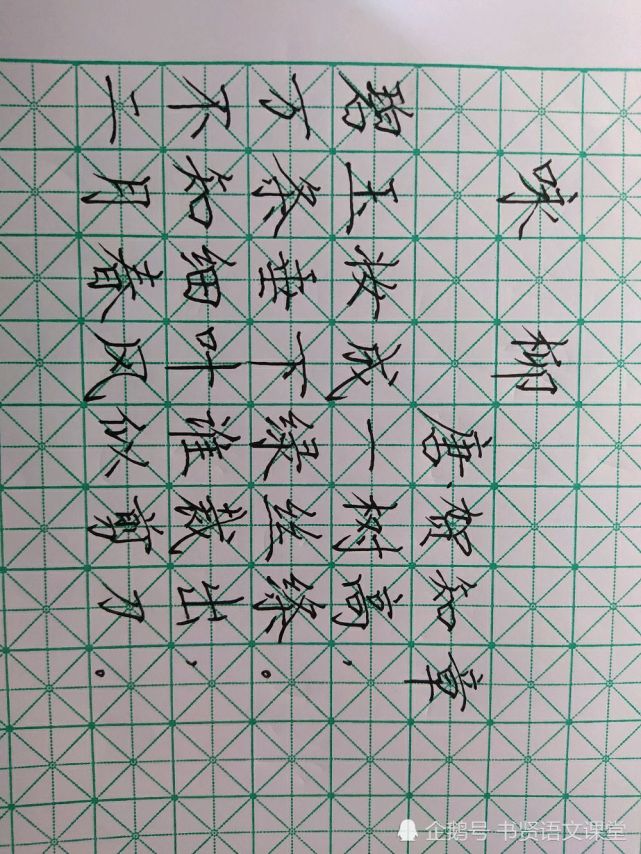 咏柳
唐·贺知章
碧玉妆成一树高,
万条垂下绿丝绦。
不知细叶谁裁出,
二月春风似剪刀。
企鹅号 书贤语文课堂